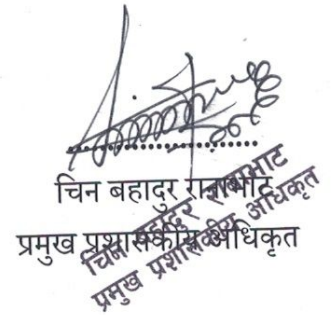 चिन बहादुर रानाभाट
प्रमुख प्रशासकीय अधिकृत
चिन बहादुर रानाभाट
प्रमुख प्रशासकीय अधिकृत